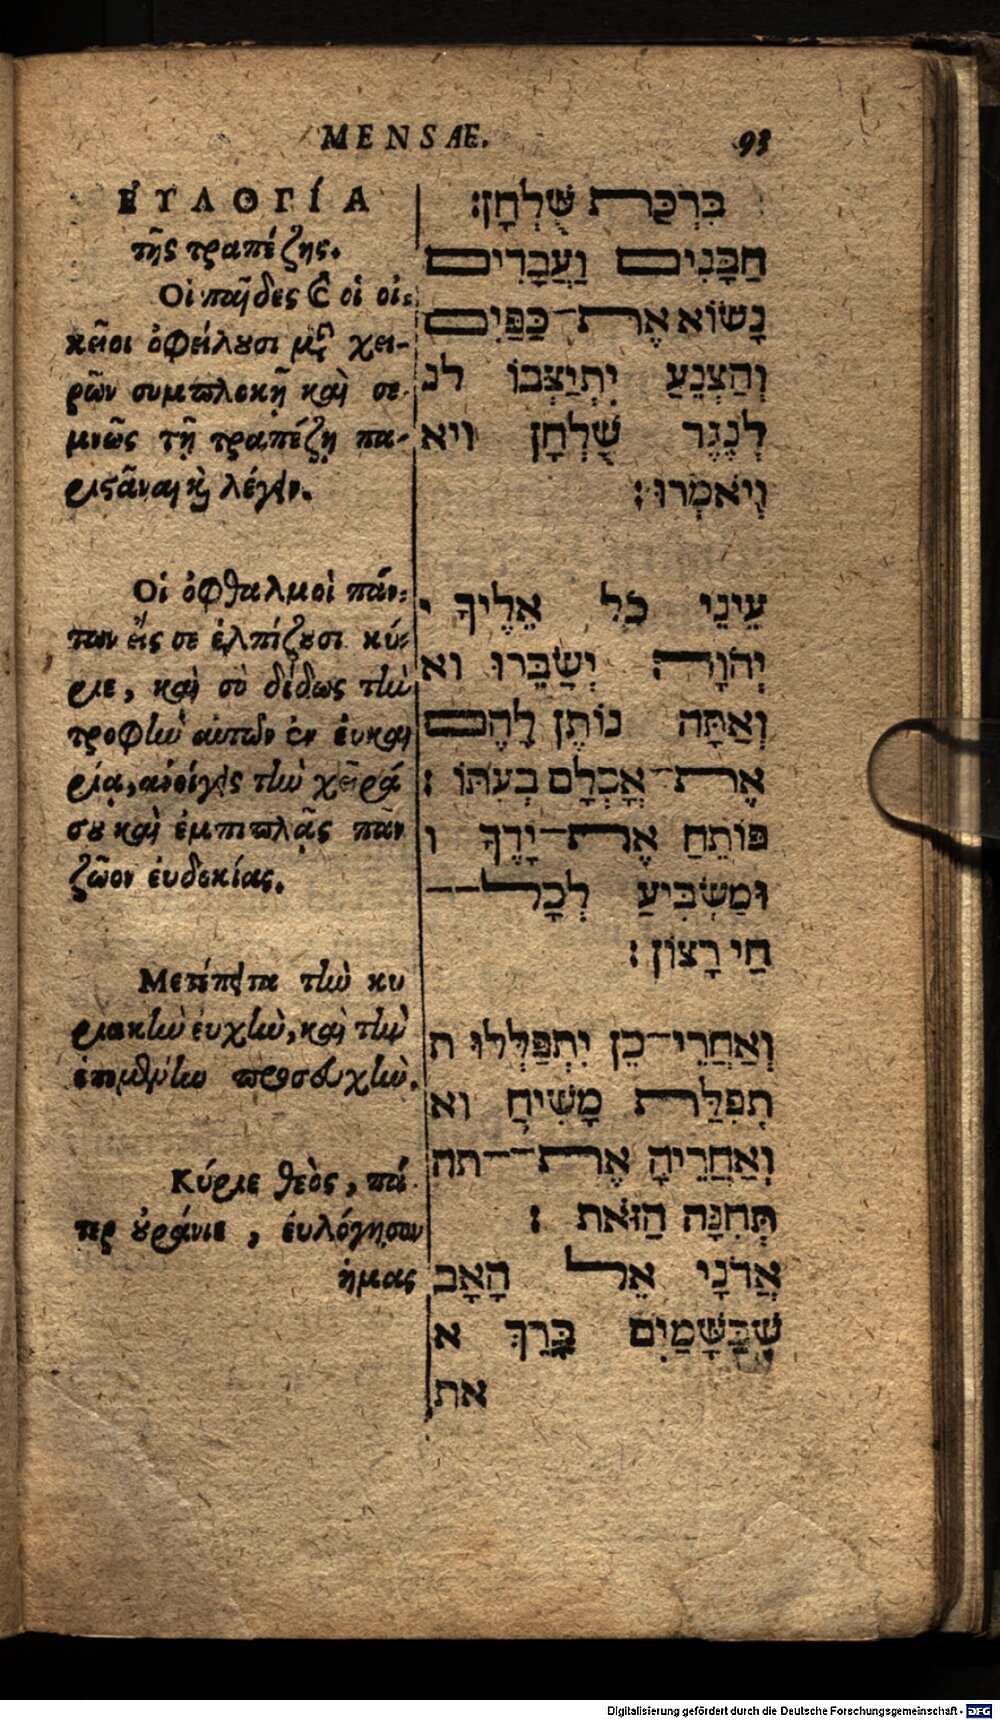 MENSAE. 93
ΕΥΛΟΓΊΑ
τῆς τραπέζης.
Οἱ παῖδες καὶ οἱ οἰ-
κεῖοι ὀφείλουσι μετὰ χει-
ρῶν συμπλοκῇ καὶ σε-
μνῶς τῇ τραπέζῃ πα-
ριστᾶναι καὶ λέγειν.
Οἱ ὀφθαλμοὶ πάν-
των εἰς σε ἐλπίζουσι κύ-
ριε, καὶ σὺ δίδως τὴν
τροφὴν αὐτῶν ἐν ἐυκαι
ρίᾳ, ἀνοίγεις τὴν χεῖρά
σου καὶ ἐμπιπλᾷς πᾶν
ζῶον ἐυδοκίας.
Μετέπειτα τὴν κυ
ριακὴν ἐυχὴν, καὶ τὴν
ἑπομένην προσευχὴν.
Κύριε θεὸς, πά
τερ οὐράνιε, ἐυλόγησον
ἡμας
בִּרְכַּת שֻׁלְחָן:
הַבָּנִים וַעֲבָדִים
נָשׂוֹא אֶת־כַּפַּיִם
וְהַצְנֵעַ יִתְיַצְּבוֹ לנ
לְנֶגֶד שֻׁלְחָן ויא
וְיֹאמְרוּ:
עֵינֵי כֹל אֵלֶיךָ י
יְהוָֹה יְשַׂבֵּרוּ וא
וְאַתָּה נוֹתֵן לָהֶם
אֶת־אָכְלָם בְּעִתּוֹ:
פּוֹתֵחַ אֶת־יָדֶךָ ו
וּמַשְׂבִּיעַ לְכָל־־
חַי רָצוֹן:
וְאַחֲרֵי־כֵן יִתְפַּלְּלוּ ת
תְפִלַּת מָשִׁיחַ וא
וְאַחֲרֶיהָ אֶת־־תה
תְּחִנָּה הַזֹּאת:
אֲדֹנָי אֵל הָאָב
שֶׁבַּשָּׁמַיִם בָּרֵךְ א
את
Digitalisierung gefördert durch die Deutsche Forschungsgemeinschaft - DFG